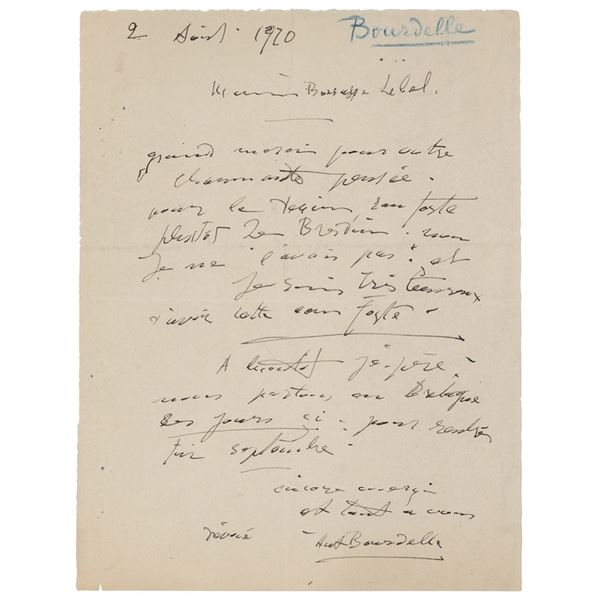 2 Août 1920
Bourdelle
Monsieur Lebel.
grand merci pour votre
charmante pensée.
pour le
plustôt de Bresdin. non
je ne l'avais pas! et
je suis très heureux
d'avoir cette
A bientôt j'espère.
nous partons en Bretagne
ces jours ci. pour rentrer
fin septembre.
encore merci
et tout à vous
dévoué
Ant Bourdelle